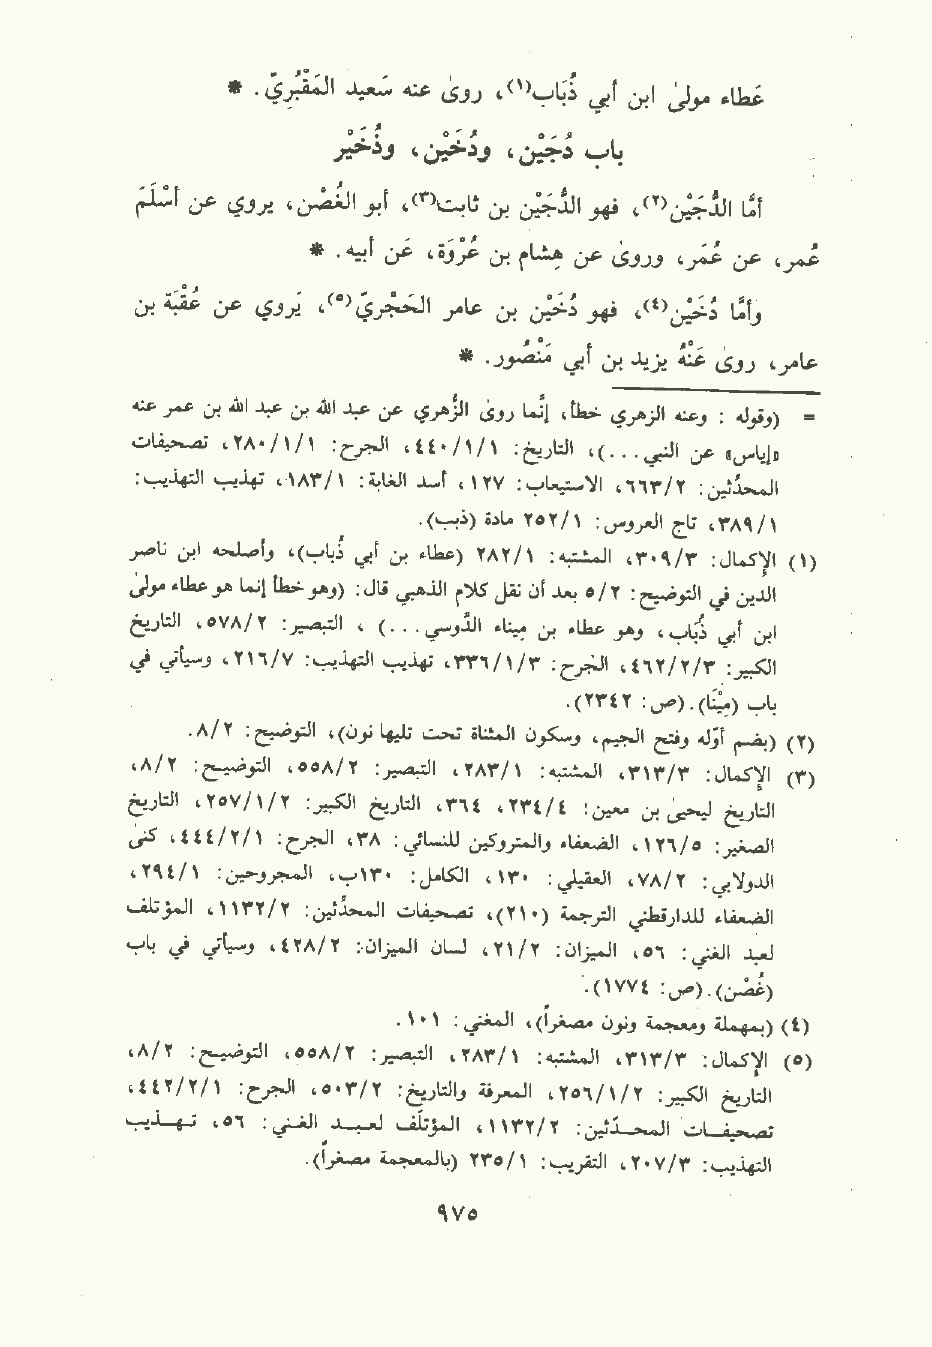 عَطاء مولىٰ ابن أبي ذُبَاب(١)، روىٰ عنه سَعيد المَقْبُرِيّ. *
باب دُجَيْن، ودُخَيْن، وذُخَيْر
أمَّا الدُّجَيْن(٢)، فهو الدُّجَيْن بن ثابت(٣)، أبو الغُصْن، يروي عن أسْلَمَ
عُمر، عن عُمَر، وروىٰ عن هِشام بن عُرْوَة، عَن أبيه. *
وأمَّا دُخَيْن(٤)، فهو دُخَيْن بن عامر الحَجْريّ(٥)، يَروي عن عُقْبَة بن
عامر، روىٰ عَنْهُ يزيد بن أبي مَنْصُور. *
= (وقوله : وعنه الزهري خطأ، إنّما روىٰ الزُّهري عن عبد الله بن عبد الله بن عمر عنه
«إياس» عن النبي...)، التاريخ: ٤٤٠/١/١، الجرح: ٢٨٠/١/١، تصحيفات
المحدّثين: ٦٦٣/٢، الاستيعاب: ١٢٧، أسد الغابة: ١٨٣/١، تهذيب التهذيب:
٣٨٩/١، تاج العروس: ٢٥٢/١ مادة (ذبب).
(١) الإكمال: ٣٠٩/٣، المشتبه: ٢٨٢/١ (عطاء بن أبي ذُباب)، وأصلحه ابن ناصر
الدين في التوضيح: ٥/٢ بعد أن نقل كلام الذهبي قال: (وهو خطأ إنما هو عطاء مولىٰ
ابن أبي ذُبَاب، وهو عطاء بن مِيناء الدَّوسي...) ، التبصير: ٥٧٨/٢، التاريخ
الكبير: ٤٦٢/٢/٣، الجَرح: ٣٣٦/١/٣، تهذيب التهذيب: ٢١٦/٧، وسيأتي في
باب (مِيْنَا). (ص: ٢٣٤٢).
(٢) (بضم أوّله وفتح الجيم، وسكون المثناة تحت تليها نون)، التوضيح: ٨/٢.
(٣) الإكمال: ٣١٣/٣، المشتبه: ٢٨٣/١، التبصير: ٥٥٨/٢، التوضيح: ٨/٢،
التاريخ ليحيىٰ بن معين: ٢٣٤/٤، ٣٦٤، التاريخ الكبير: ٢٥٧/١/٢، التاريخ
الصغير: ١٢٦/٥، الضعفاء والمتروكين للنسائي: ٣٨، الجرح: ٤٤٤/٢/١، كنىٰ
الدولابي: ٧٨/٢، العقيلي: ١٣٠، الكامل: ١٣٠ب، المجروحين: ٢٩٤/١،
الضعفاء للدارقطني الترجمة (٢١٠)، تصحيفات المحدّثين: ١١٣٢/٢، المؤتلف
لعبد الغني: ٥٦، الميزان: ٢١/٢، لسان الميزان: ٤٢٨/٢، وسيأتي في باب
(غُصْن). (ص: ١٧٧٤).
(٤) (بمهملة ومعجمة ونون مصغراً)، المغني: ١٠١.
(٥) الإكمال: ٣١٣/٣، المشتبه: ٢٨٣/١، التبصير: ٥٥٨/٢، التوضيح: ٨/٢،
التاريخ الكبير: ٢٥٦/١/٢، المعرفة والتاريخ: ٥٠٣/٢، الجرح: ٤٤٢/٢/١،
تصحيفات المحدّثين: ١١٣٢/٢، المؤتلف لعبد الغني: ٥٦، تهذيب
التهذيب: ٢٠٧/٣، التقريب: ٢٣٥/١ (بالمعجمة مصغراً).
٩٧٥